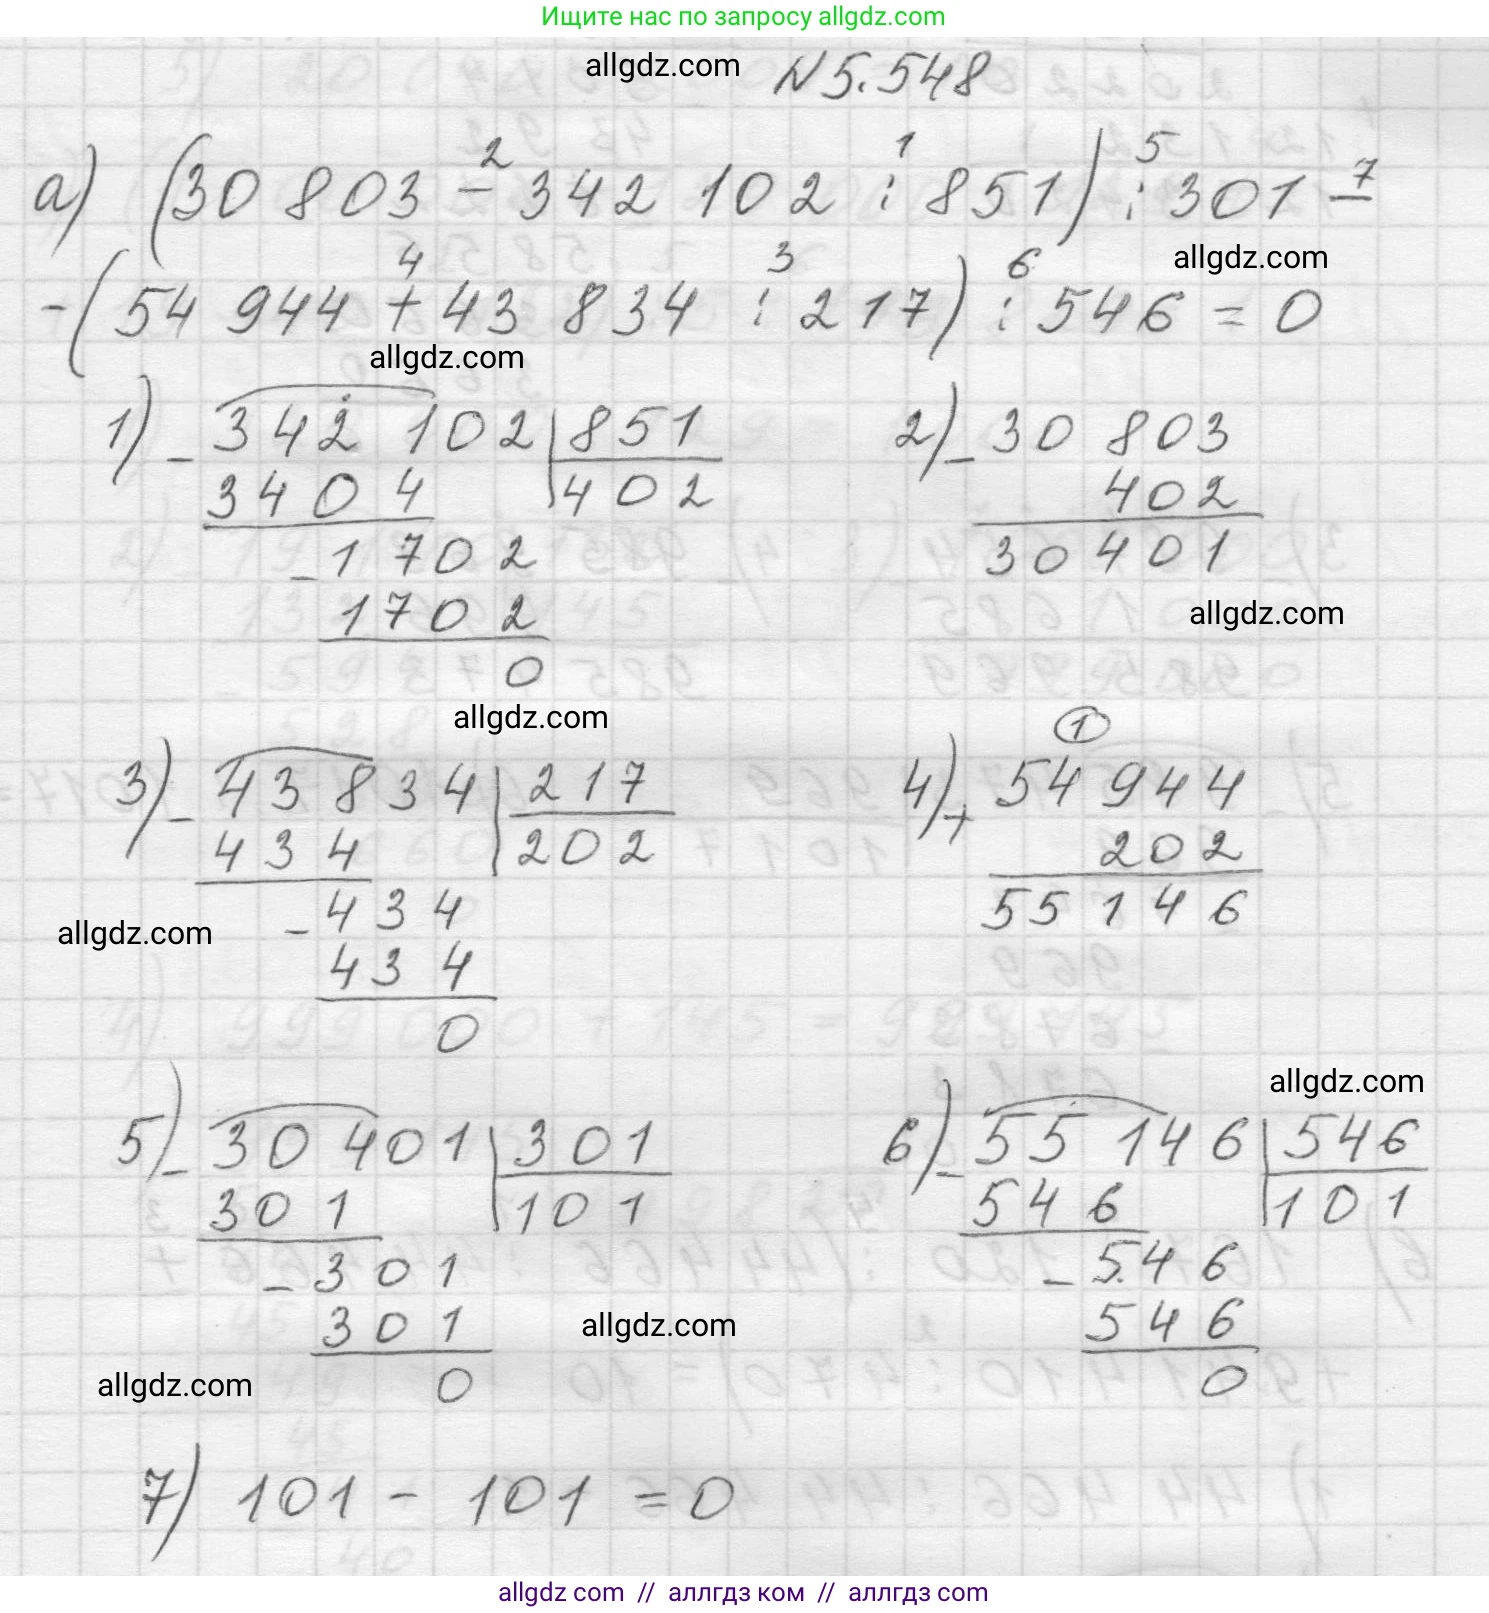 Ищите нас по запросу allgdz.com
allgdz.com
N 5.548
2 1 5 7
а) (30 803 - 342 102 : 851) : 301 -
allgdz.com
4 3 6
-(54 944 + 43 834 : 217) : 546 = 0
allgdz.com
1) - 342 102 | 851
3404 | 402
- 1702
1702
0
2) - 30 803
402
30 401
allgdz.com
allgdz.com
3) - 43 834 | 217
434 | 202
- 434
434
0
allgdz.com
1
4) + 54 944
202
55 146
allgdz.com
5) - 30 401 | 301
301 | 101
- 301
301
0
allgdz.com
6) - 55 146 | 546
546 | 101
- 546
546
0
allgdz.com
allgdz.com
7) 101 - 101 = 0
allgdz com // аллгдз ком // аллгдз com